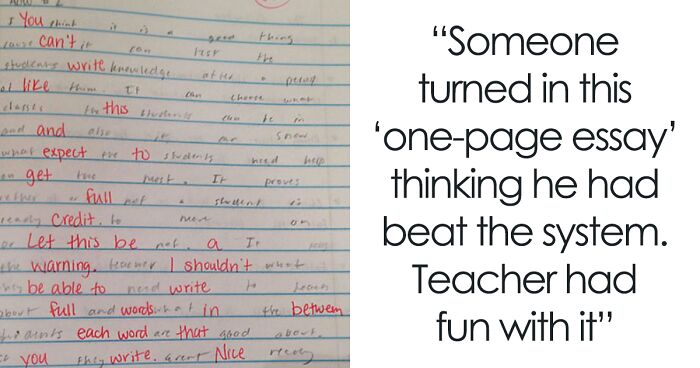 I You think it is a good thing
cause can't it can test the
students write knowledge after a period
of like them. It can choose what
classes the this students can be in
and and also it can show
what expect the to students need help
on get the most. It proves
or full not a student is
ready credit. to move on
or Let this be not. a It
the warning. teacher I shouldn't what
they be able to need write to teach
about full and words what in the between
students each word are that good about.
you they write. aren't Nice really
“Someone
turned in this
‘one-page essay’
thinking he had
beat the system.
Teacher had
fun with it”